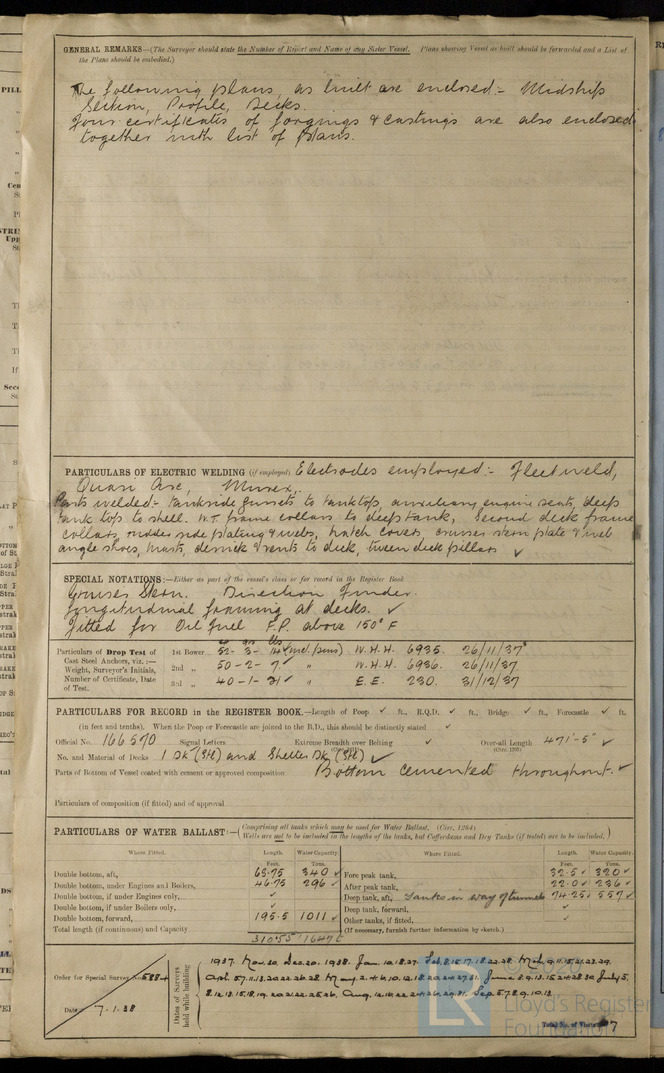 GENERAL REMARKS—(The Surveyor should state the Number of Report and Name of any Sister Vessel. Plans showing Vessel as built should be forwarded and a List of
the Plans should be embodied.)
The following plans, as built are enclosed:- Midship
Section, Profile, Decks.
Four certificates of forgings & castings are also enclosed
together with list of plans.
PARTICULARS OF ELECTRIC WELDING (if employed) Electrodes employed:- Fleetweld,
Quasi Arc, Murex.
Parts welded:- tankside gussets to tanktop, auxiliary engine seats, deep
tank top to shell. W.T. frame collars to deeptank, Second deck frame
collars, rudder side plating & webs, hatch covers, cruiser stern plate & web
angle shoes, masts, derrick & vents to deck, tween deck pillars ✓
SPECIAL NOTATIONS:—Either as part of the vessel's class or for record in the Register Book
Cruiser Stern. Direction Finder.
Longitudinal framing at decks. ✓
Fitted for Oil fuel F.P. above 150° F
Particulars of Drop Test of
Cast Steel Anchors, viz.:—
Weight, Surveyor's Initials,
Number of Certificate, Date
of Test.
1st Bower 52-3-14 (incl pins) W.H.H. 6935. 26/11/37
2nd „ 50-2-7 ✓ „ W.H.H. 6936. 26/11/37
3rd „ 40-1-21 ✓ „ E.E. 230. 31/12/37
PARTICULARS FOR RECORD in the REGISTER BOOK.—Length of Poop ✓ ft., R.Q.D. ✓ ft., Bridge ✓ ft., Forecastle ✓ ft.
(in feet and tenths). When the Poop or Forecastle are joined to the B.D., this should be distinctly stated ✓
Official No. 166570 Signal Letters Extreme Breadth over Belting ✓ Over-all Length 471'-5" ✓
No. and Material of Decks 1 Dk (Stl) and Shelter Dk (Stl) ✓
Parts of Bottom of Vessel coated with cement or approved composition Bottom cemented throughout. ✓
Particulars of composition (if fitted) and of approval
PARTICULARS OF WATER BALLAST:—(Comprising all tanks which may be used for Water Ballast. (Circ. 1284)
Wells are not to be included in the lengths of the tanks, but Cofferdams and Dry Tanks (if tested) are to be included.)
Where Fitted. Length. Water Capacity. Where Fitted. Length. Water Capacity.
Feet. Tons. Feet. Tons.
Double bottom, aft, 68.75 340 ✓ Fore peak tank, 32.5 ✓ 320 ✓
Double bottom, under Engines and Boilers, 46.75 296 ✓ After peak tank, 22.0 ✓ 236 ✓
Double bottom, if under Engines only, ✓ Deep tank, aft, Tanks in way of tunnels 74.25 557 ✓
Double bottom, if under Boilers only, ✓ Deep tank, forward, ✓
Double bottom, forward, 195.5 1011 ✓ Other tanks, if fitted, ✓
Total length (if continuous) and Capacity 1647 (If necessary, furnish further information by sketch.)
Order for Special Survey No. 5884
Date 7.1.38
Dates of Surveys held while building
1937. Nov. 30. Dec. 20. 1938. Jan. 10.18.27. Feb. 8.15.17.18.22.28. Mch. 9.11.15.21.23.29.
Apl. 5.7.11.13.20.22.26.28. May 2.4.6.10.12.18.20.24.27.31. June 3.9.13.15.24.28.30. July 5.
8.12.13.15.18.19.20.21.22.25.26. Aug. Sep. 5.7.8.9.10.13
Total No. of Visits
© 2020
LR
Lloyd's Register
Foundation